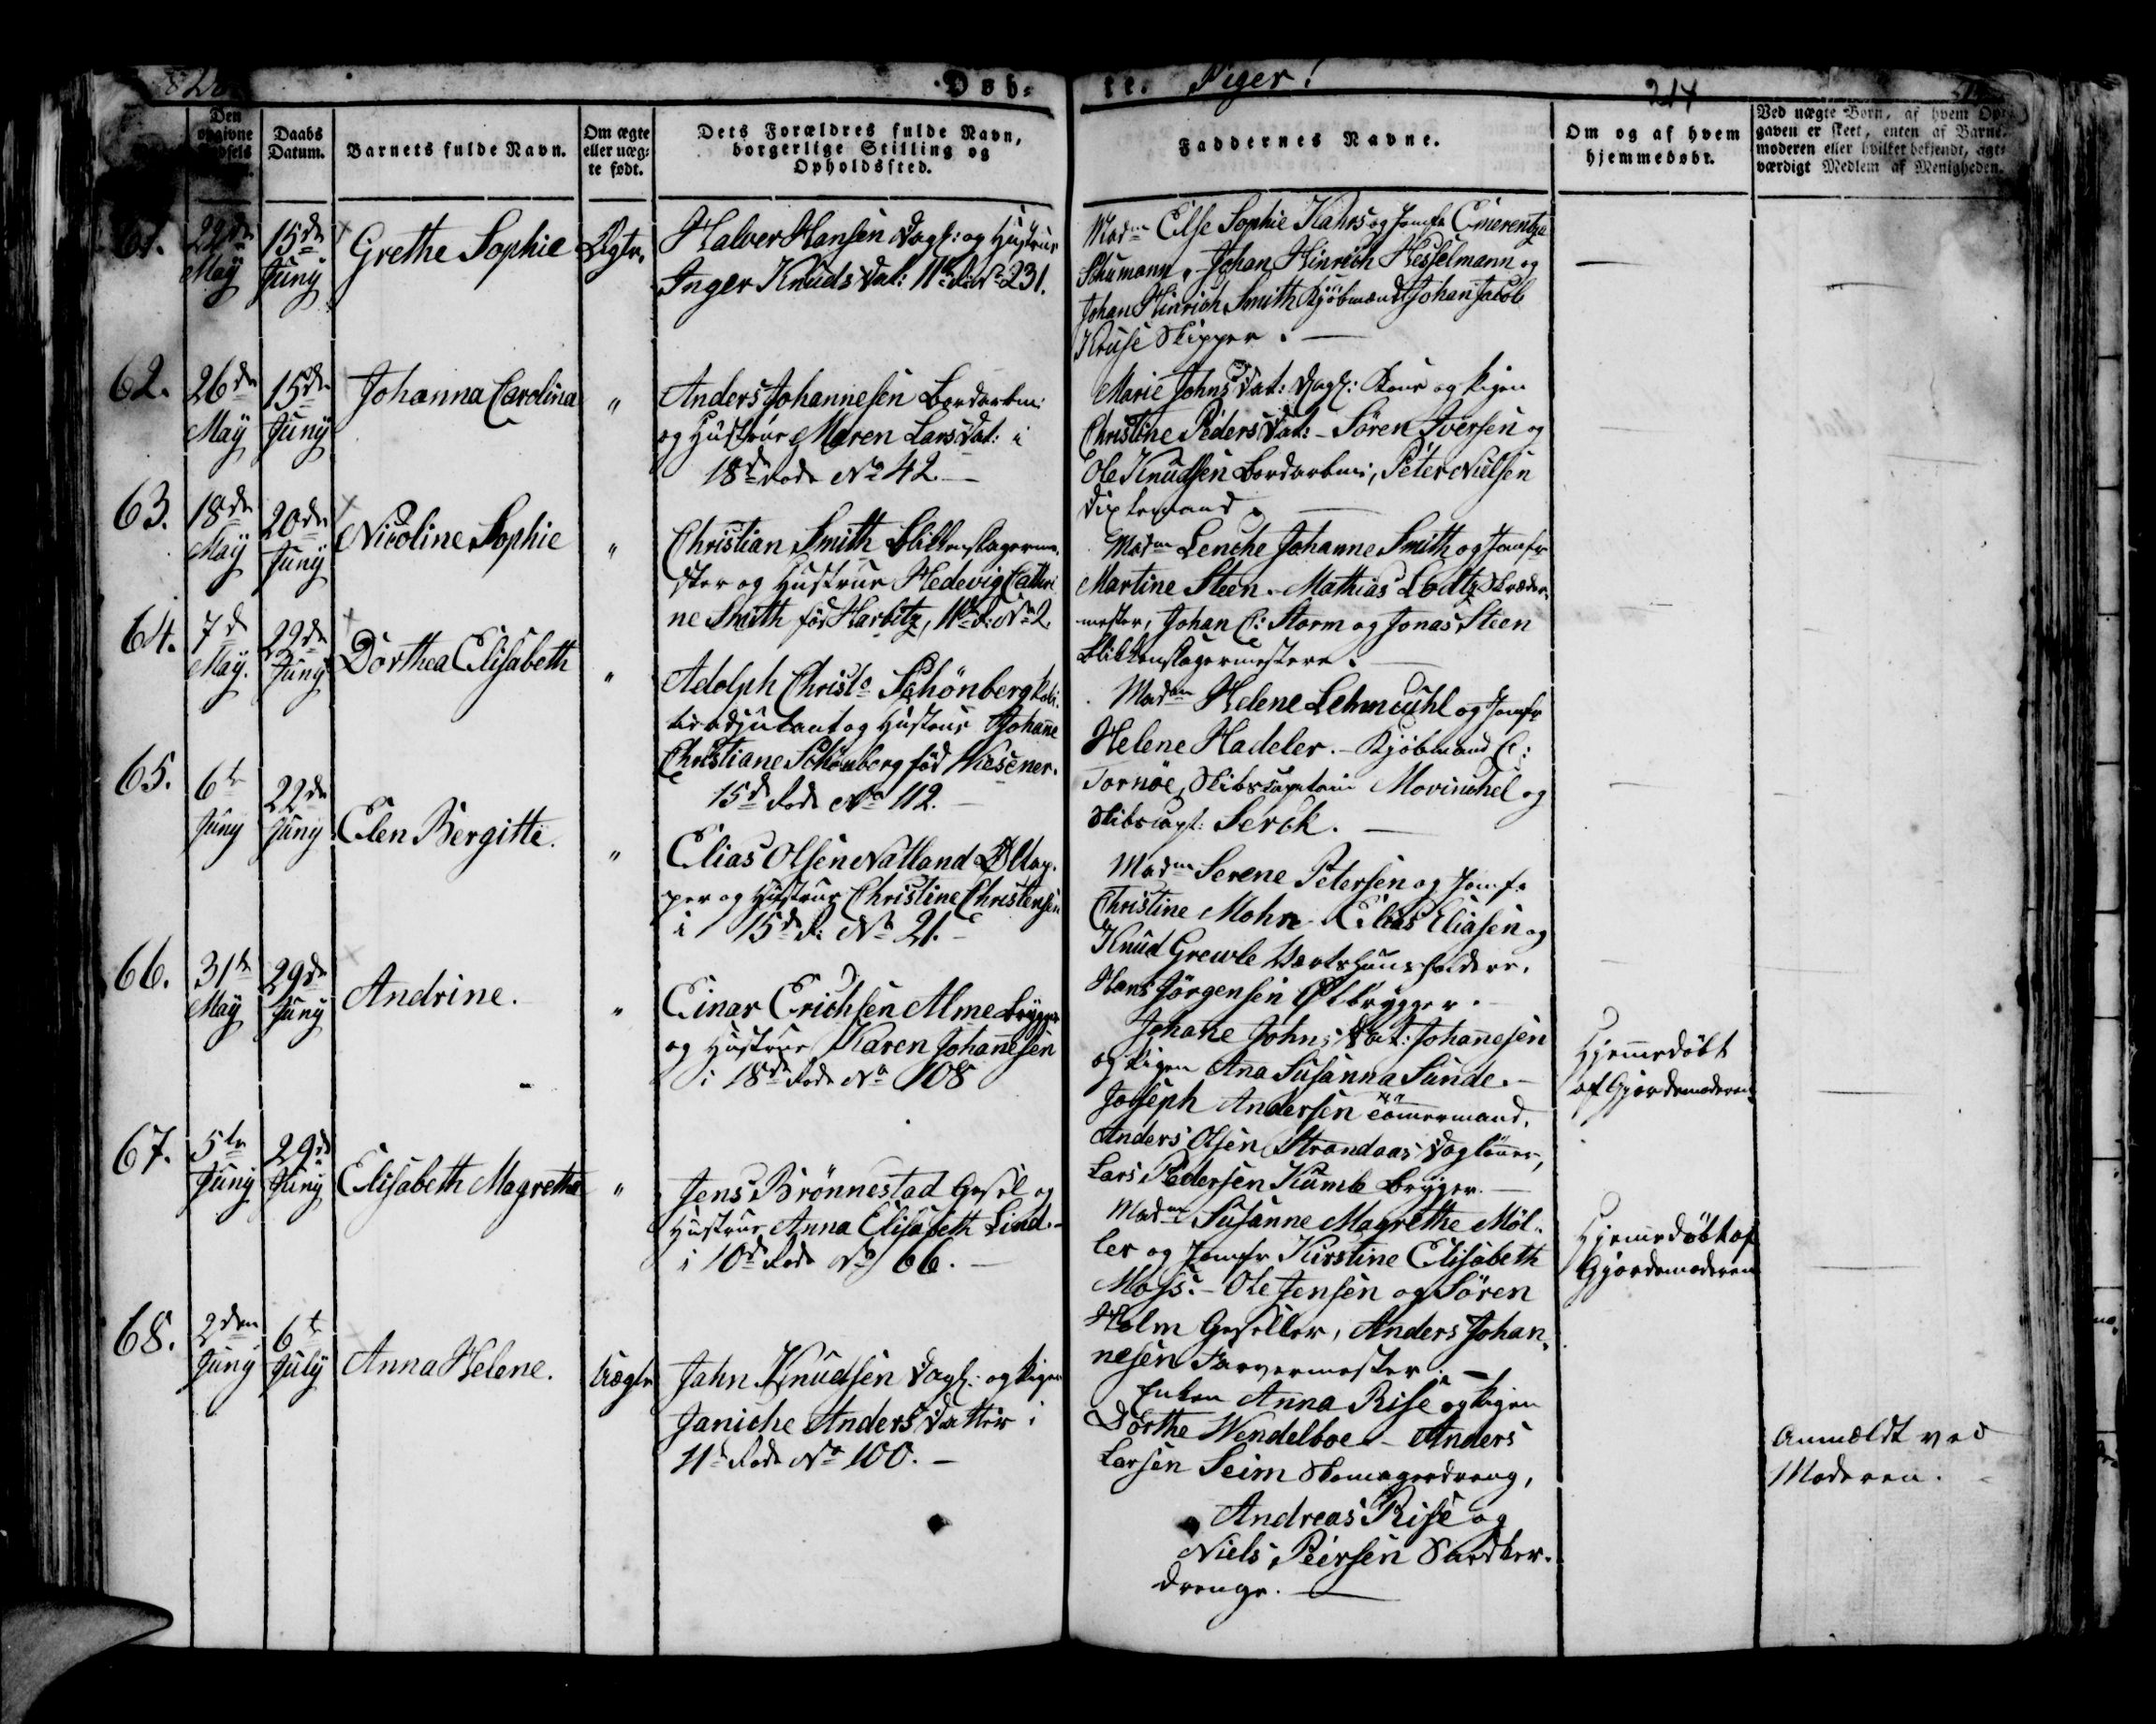 Døb-
te. Piger!
214
Den
opgivne
Daabs
Datum.
Barnets fulde Navn.
Om ægte
eller uæg-
te født.
Dets Forældres fulde Navn,
borgerlige Stilling og
Opholdssted.
Faddernes Navne.
Om og af hvem
hjemmedøbt.
Ved uægte Børn, af hvem Op-
gaven er skeet, enten af Barne-
moderen eller hvilket bekjendt, agt-
værdigt Medlem af Menigheden.
61.
22de
May
15de
Juny
Grethe Sophie
Ægte.
Halver Hansen Dagl: og Hustrue
Inger Knuds Dat: 11te R: No 231.
Madm Else Sophie Kahrs og Jomfr Emerentze
Schumann, Johan Hinrich Hesselmann og
Johan Hinrich Smith Kjöbmænd Johan Jacob
Kruse Skipper. —
62.
26de
May
15de
Juny
Johanna Carolina
"
Anders Johannesen Bordarbm:
og Hustrue Maren Lars Dat: i
18de Rode No 42. —
Marie Johns Dat: Dagl: Kone og Pigen
Christine Peders Dat: - Sören Iversen og
Ole Knudsen Bordarbm:, Peter Nielsen
63.
18de
May
20de
Juny
Nicoline Sophie
"
Christian Smith Blikkenslagerme-
ster og Hustrue Hedevig Cathri
ne Smith föd Harbitz, 11te R: No 2.
Madm Lenche Johanne Smith og Jomfr
Martine Steen. Mathias Lodtz Skræder-
mester, Johan C: Storm og Jonas Steen
Blikkenslagermestere. —
64.
7de
May.
22de
Juny
Dorthea Elisabeth
"
Adolph Christo Schönberg Poli-
tieadjutant og Hustrue Johane
Christiane Schönberg föd Wesener.
15de Rode No 112. —
Madm Helene Lehmcuhl og Jomfr
Helene Hadeler. - Kjöbmand C:
Tornöe, Skibscapitain Movinchel og
Skibscapt: Serck. —
65.
6te
Juny
22de
Juny
Elen Bergitte.
"
Elias Olsen Natland Öltap-
per og Hustrue Christine Christensen
i 15de R: No 21. —
Madm Serene Petersen og Jomfr
Christine Mohn - Elias Eliasen og
Knud Grewle Vertshuusholdere.
Hans Jörgensen Ölbrygger.
66.
31te
May
29de
Juny
Andrine.
"
Einar Erichsen Alme Brygger
og Hustrue Karen Johanesen
i 18de Rode No 108
Johane Johns Dat: Johanesen
og Pigen Ana Susanna Sunde. -
Joseph Andersen Tömermand,
Anders Olsen Strandaas Daglöner,
Lars Pedersen Kumle Bryger. —
Hjemedöbt
af Gjordemoderen.
67.
5te
Juny
29de
Juny
Elisabeth Magrethe
"
Jens Brönnestad Gesel og
Hustrue Anna Elisabeth Lind. -
i 10de Rode No 66. —
Madm Susanne Magrethe Möl-
ler og Jomfr Kirstine Elisabeth
Moss. - Ole Jensen og Sören
Holm Geseller, Anders Johan-
nesen Farvermester. —
Hjemedöbt af
Gjordemoderen
68.
2den
Juny
6te
July
Anna Helene.
Uægte
Jahn Knudsen Dagl: og Pigen
Janiche Anders Datter i
11te Rode No 100. —
Enken Anna Rise og Pigen
Dorthe Wendelboe. - Anders
Larsen Seim Skomagerdreng,
Andreas Rise og
Niels Peersen Snedker-
drenge. —
Anmeldt ved
Moderen.